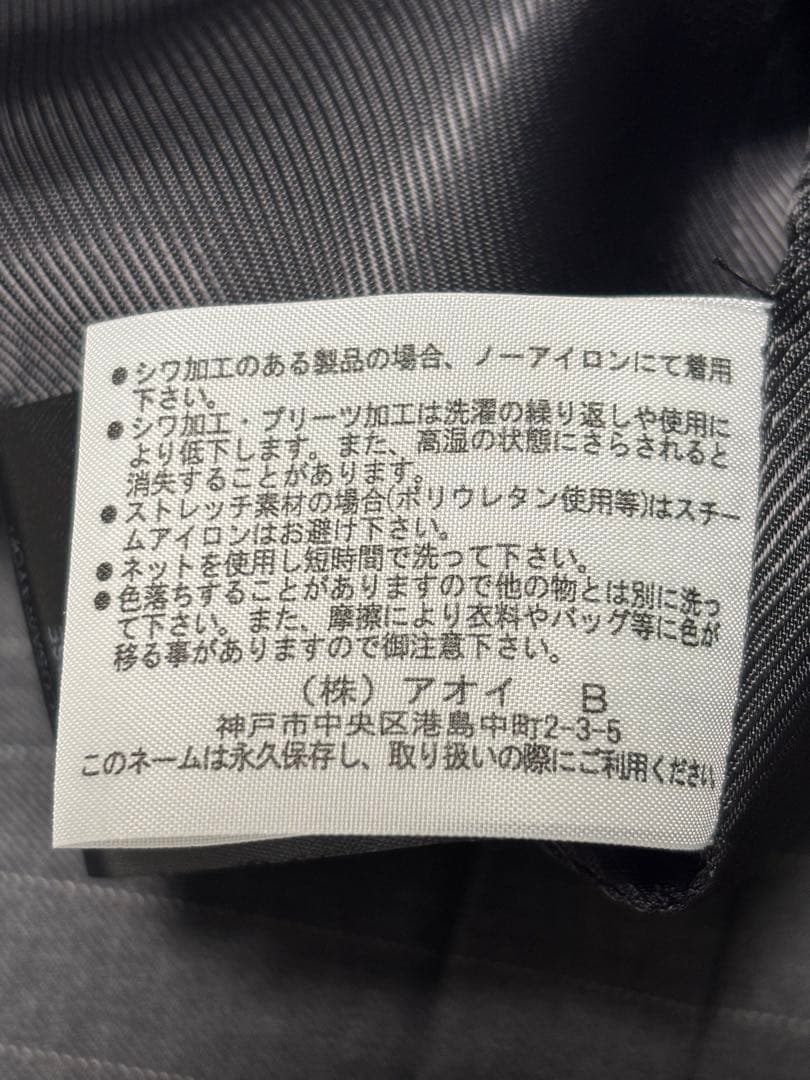 ●シワ加工のある製品の場合、ノーアイロンにて着用
下さい。
●シワ加工・プリーツ加工は洗濯の繰り返しや使用に
より低下します。また、高湿の状態にさらされると
消失することがあります。
●ストレッチ素材の場合(ポリウレタン使用等)はスチー
ムアイロンはお避け下さい。
●ネットを使用し短時間で洗って下さい。
●色落ちすることがありますので他の物とは別に洗っ
て下さい。また、摩擦により衣料やバッグ等に色が
移る事がありますので御注意下さい。
(株) アオイ B
神戸市中央区港島中町2-3-5
このネームは永久保存し、取り扱いの際にご利用ください